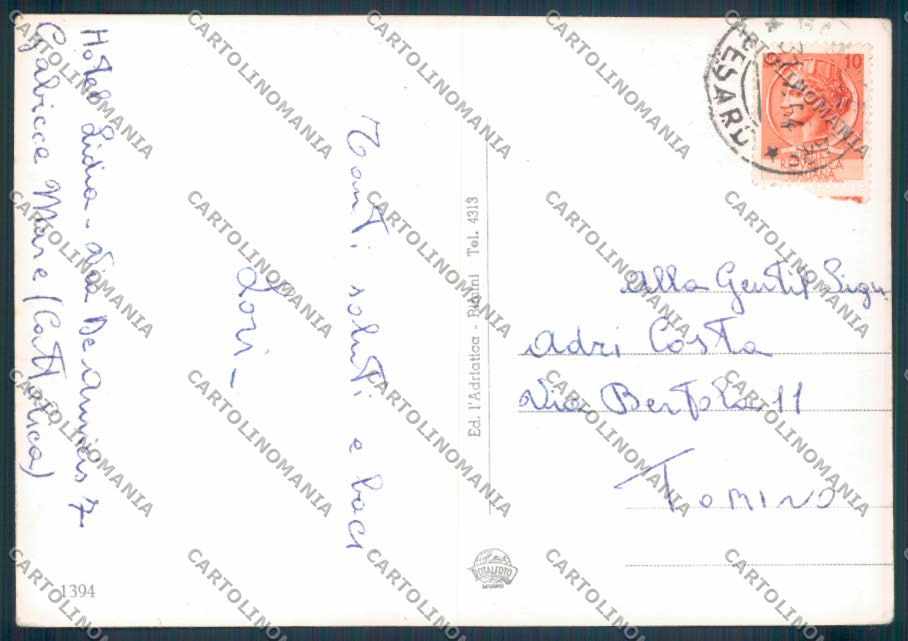 Hotel Lidia - Via De Amicis 7
Gabicce Mare (Cattolica)
Tanti saluti e baci
Lori -
1394
Ed. l'Adriatica - Rimini Tel. 4313
ROTALFOTO
MILANO
ESARO
10
REPUBBLICA
ITALIANA
Alla Gentil Sign
Adri Costa
Via Bertola 11
Torino
CARTOLINOMANIA